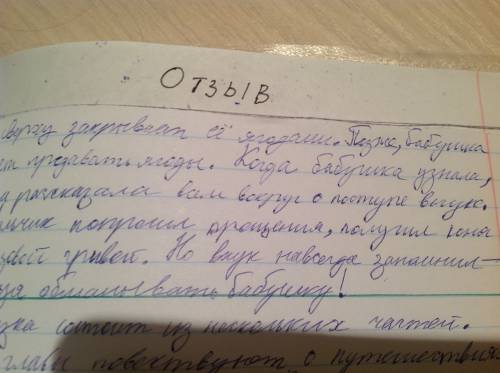 Отзыв
сверху закрывает её ягодами. Позже, бабушка
продавать ягоды. Когда бабушка узнала,
рассказала вам вокруг о поступке внука.
попросил прощения, получил коня
гривой. Но внук навсегда запомнил –
обманывать бабушку!
состоит из нескольких частей.
главы повествуют о путешествия